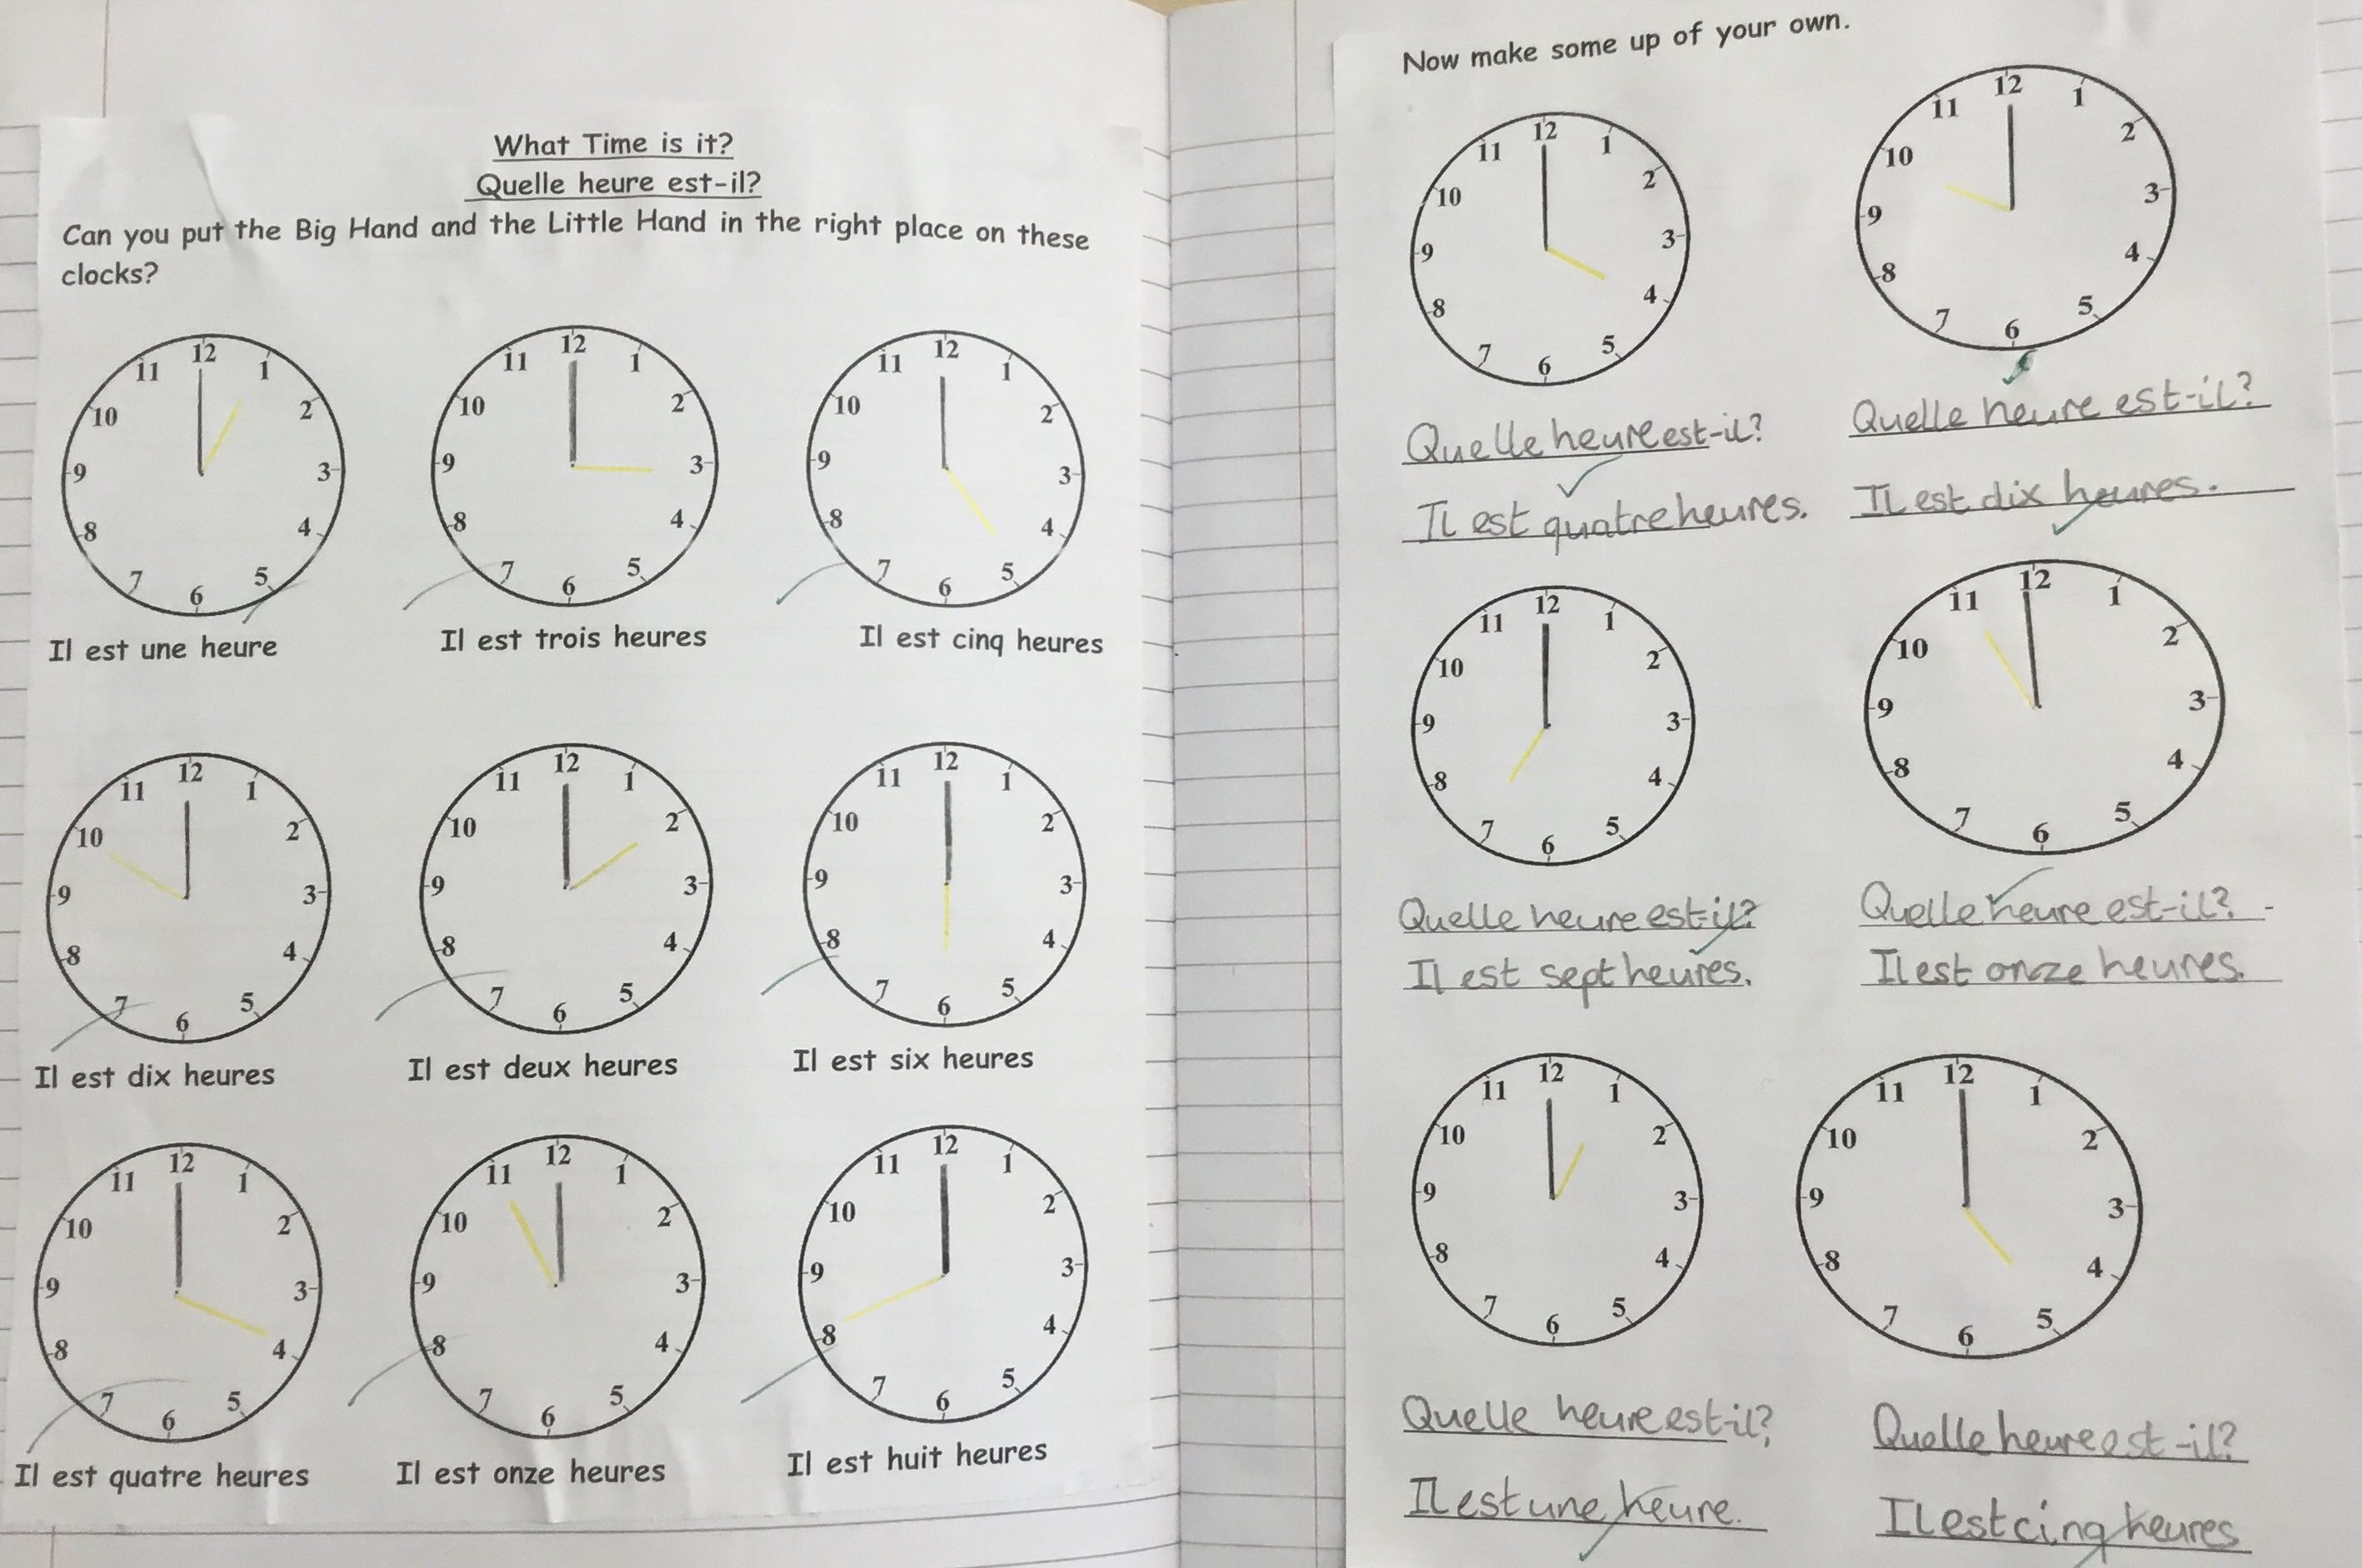 What Time is it?
Quelle heure est-il?
Can you put the Big Hand and the Little Hand in the right place on these
clocks?
12 1 2 3 4 5 6 7 8 9 10 11
12 1 2 3 4 5 6 7 8 9 10 11
12 1 2 3 4 5 6 7 8 9 10 11
Il est une heure
Il est trois heures
Il est cinq heures
12 1 2 3 4 5 6 7 8 9 10 11
12 1 2 3 4 5 6 7 8 9 10 11
12 1 2 3 4 5 6 7 8 9 10 11
Il est dix heures
Il est deux heures
Il est six heures
12 1 2 3 4 5 6 7 8 9 10 11
12 1 2 3 4 5 6 7 8 9 10 11
12 1 2 3 4 5 6 7 8 9 10 11
Il est quatre heures
Il est onze heures
Il est huit heures
Now make some up of your own.
12 1 2 3 4 5 6 7 8 9 10 11
12 1 2 3 4 5 6 7 8 9 10 11
Quelle heure est-il?
Il est quatre heures.
Quelle heure est-il?
Il est dix heures.
12 1 2 3 4 5 6 7 8 9 10 11
12 1 2 3 4 5 6 7 8 9 10 11
Quelle heure est-il?
Il est sept heures.
Quelle heure est-il?
Il est onze heures.
12 1 2 3 4 5 6 7 8 9 10 11
12 1 2 3 4 5 6 7 8 9 10 11
Quelle heure est-il?
Il est une heure.
Quelle heure est-il?
Il est cinq heures